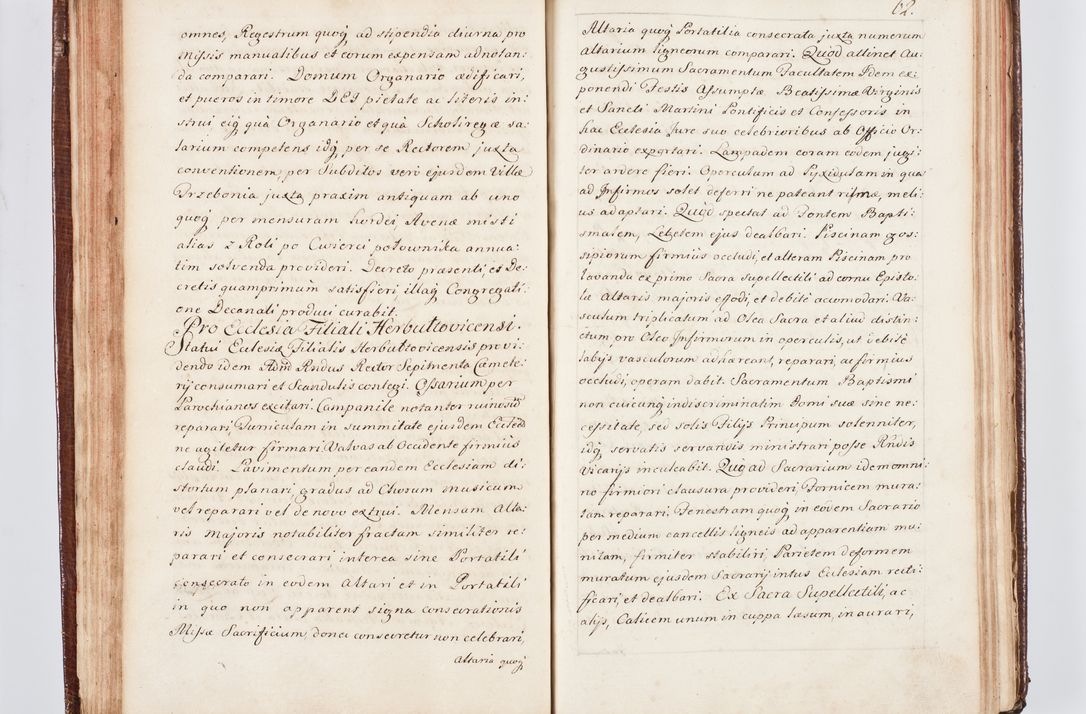 omnes, Regestrum quoq; ad stipendia diurna pro
Missis manualibus et eorum expensam adnotan:
da comparari. Domum Organario ædificari,
et pueros in timore DEI pietate ac literis in:
strui eiq; quà Organario et quà Scholiregæ sa:
larium competens idq; per se Rectorem juxta
conventionem, per Subditos verò ejusdem Villæ
Trzebonia juxta praxim antiquam ab uno
quoq; per mensuram hordei, Avenæ misti
alias z Roli po Cwierci połownika annua:
tim solvenda provideri. Decreto præsenti, et De:
cretis quamprimum satisfieri, illaq; Congregati:
one Decanali produci curabit.
Pro Ecclesia Filiali Herbultovicensi.
Statui Ecclesiæ Filialis Herbultovicensis provi:
dendo idem Admd Rndus Rector Sepimenta Cæmete:
rij consumari et Scandulis contegi. Ossarium per
Parochianos excitari. Campanile notanter ruinosũ
reparari, Turriculam in summitate ejusdem Ecclesiæ
ne agitetur firmari. Valvas ab Occidente firmiùs
claudi. Pavimentum per eandem Ecclesiam di:
stortum planari, gradus ad Chorum musicum
vel reparari vel de novo extrui. Mensam Alta:
ris Majoris notabiliter fractam similiter re:
parari et consecrari, interea sine Portatili
consecrato in eodem Altari et in Portatili
in quo non apparent signa consecrationis
Missæ Sacrificium, donec consecretur non celebrari,
Altaria quoq;
62.
Altaria quoq; Portatilia consecrata juxta numerum
altarium ligneorum comparari. Quod attinet Au:
gustissimum Sacramentum Facultatem Idem ex:
ponendi Festis Assumptæ Beatissimæ Virginis
et Sancti Martini Pontificis et Confessoris in
hac Ecclesia Jure suo celebrioribus ab Officio Or:
dinario exportari. Lampadem coram eodem jugi:
ter ardere fieri. Operculum ad Pyxidulam in qua
ad Infirmos solet deferri ne pateant rimæ, meli:
us adaptari. Quod spectat ad Fontem Bapti:
smalem, Lebetem ejus dealbari. Piscinam gos:
sipiorum firmiùs occludi, et alteram Piscinam pro
lavanda ex primo Sacra supellectili ad cornu Episto:
læ Altaris majoris effodi, et debitè accomodari. Va:
sculum triplicatum ad Olea Sacra et aliud distin:
ctum, pro Oleo Infirmorum in operculis, ut debitè
labijs vasculorum adhæreant, reparari, ac firmius
occludi, operam dabit. Sacramentum Baptismi
non cuicunq; indiscriminatim Domi suæ sine ne:
cessitate, sed solis Filijs Principum solenniter,
idq; servatis servandis ministrari posse Rndis
Vicarijs inculcabit. Quo ad Sacrarium idem omni:
no firmiori clausura provideri, Fornicem mura:
tam reparari. Fenestram quoq; in eodem Sacrario
per medium cancellis ligneis ad apparentiam mu:
nitam, firmiter stabiliri, Parietem deformem
muratum ejusdem Sacrarij intus Ecclesiam recti:
ficari, et dealbari. Ex Sacra Supellectili, ac
alijs, Calicem unum in cuppa læsum, inaurari,